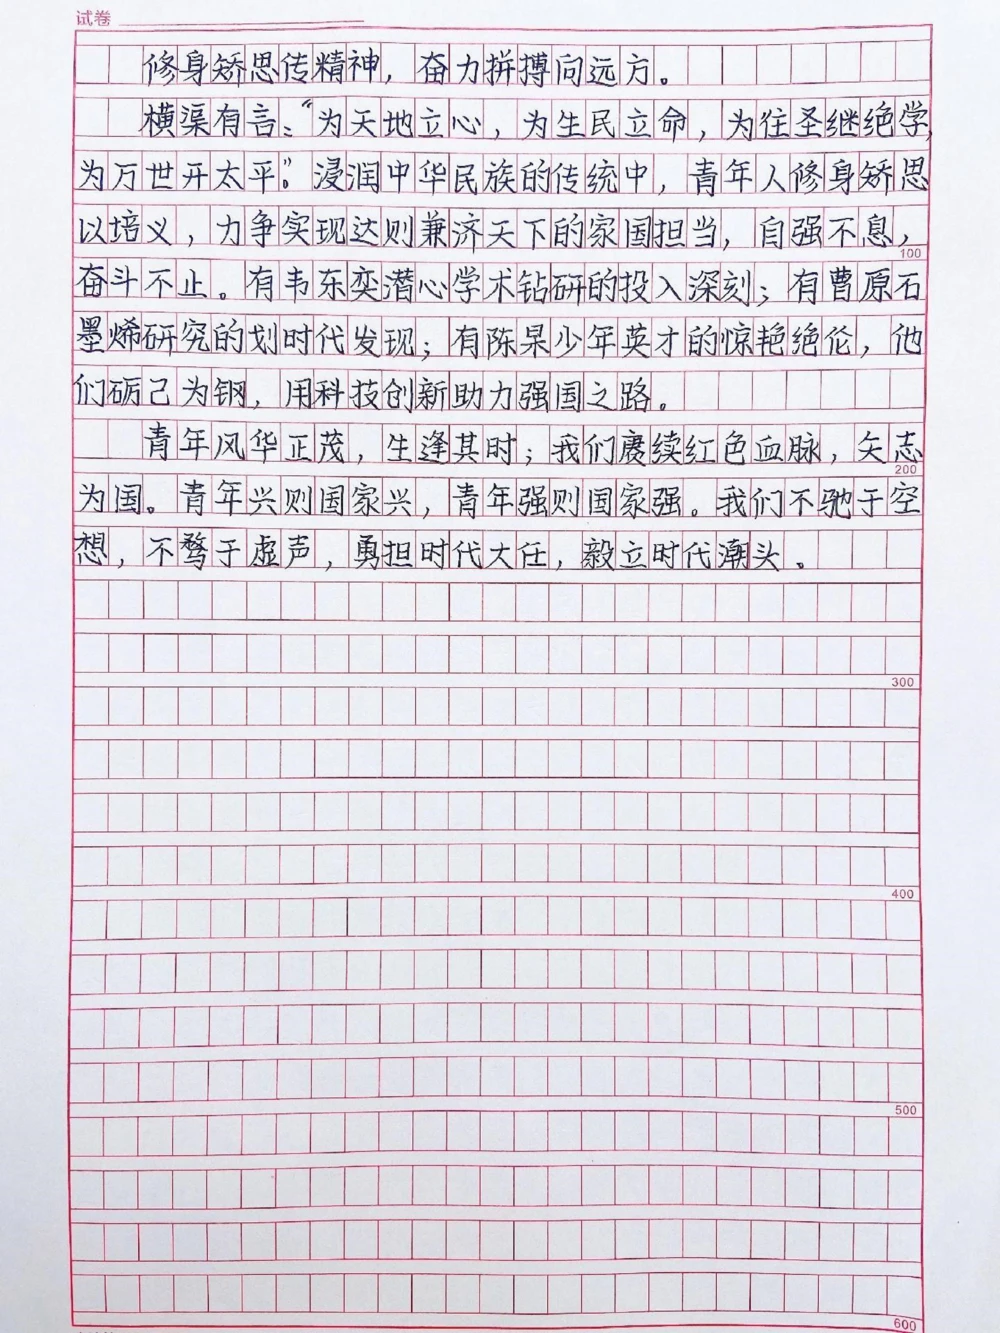 试卷
修身矫思传精神，奋力拼搏向远方。
横渠有言：“为天地立心，为生民立命，为往圣继绝学，
为万世开太平。”浸润中华民族的传统中，青年人修身矫思
以培义，力争实现达则兼济天下的家国担当，自强不息，
100
奋斗不止。有韦东奕潜心学术钻研的投入深刻；有曹原石
墨烯研究的划时代发现；有陈杲少年英才的惊艳绝伦，他
们砺己为钢，用科技创新助力强国之路。
青年风华正茂，生逢其时；我们赓续红色血脉，矢志
200
为国。青年兴则国家兴，青年强则国家强。我们不驰于空
想，不骛于虚声，勇担时代大任，毅立时代潮头。
300
400
500
600